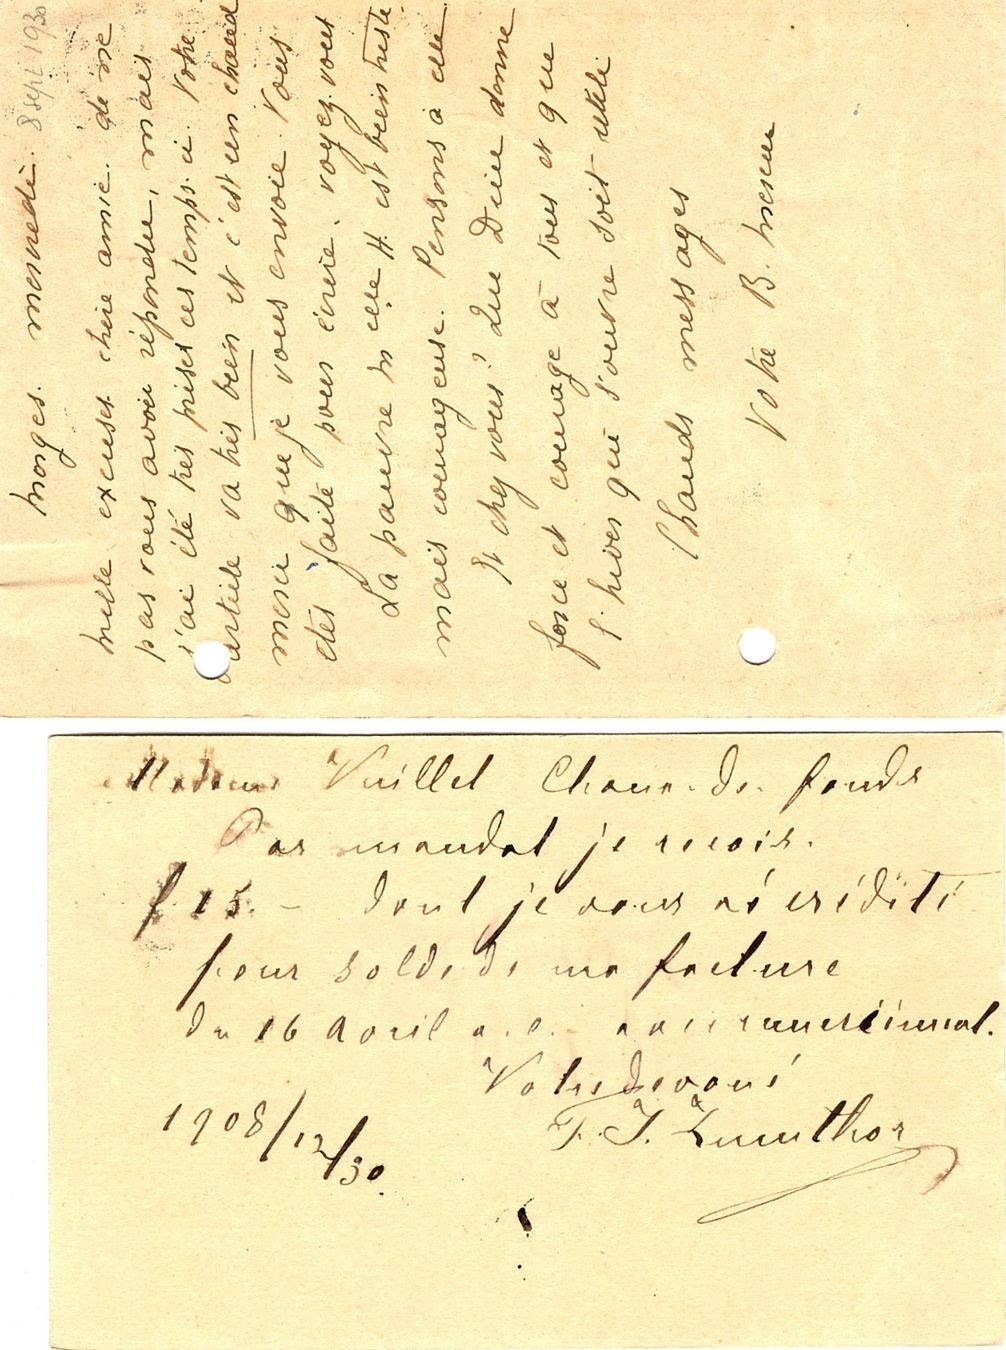 Morges. mercredi. 8 sept 1930
mille excuses chère amie de ne
pas vous avoir répondu, mais
j'ai été très prises ces temps. ci. Votre
article va très bien et c'est un chaud
merci que je vous envoie. Vous
êtes faite pour écrire. voyez vous
La pauvre Melle H. est bien triste
mais courageuse. Pensons à elle
Et chez vous? Que Dieu donne
force et courage à tous et que
l'hiver qui s'ouvre soit utile
Chauds messages
Votre B.
Madame Vuillet Chaux-de-fonds
Par mandat je reçois.
f 15. – dont je vous ai crédité
pour solde de ma facture
du 16 Avril a.c. avec remerciement.
Votre dévoué
1908/12/30.
F. J.